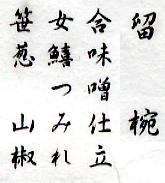 留椀
合味噌仕立
女鱚つみれ
笹葱 山椒